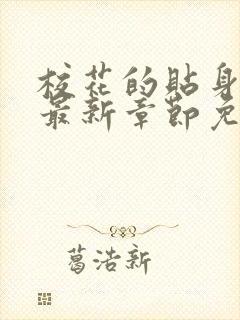 校花的贴身
最新章节免
葛浩新